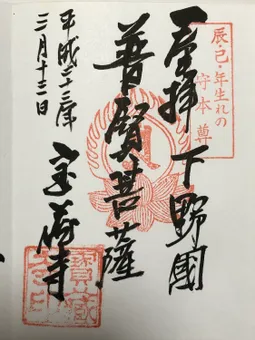 辰・巳・年生れの
守本尊
奉拝 下野國
普賢菩薩
宝蔵寺
平成二十三年
三月十三日
寶蔵寺印